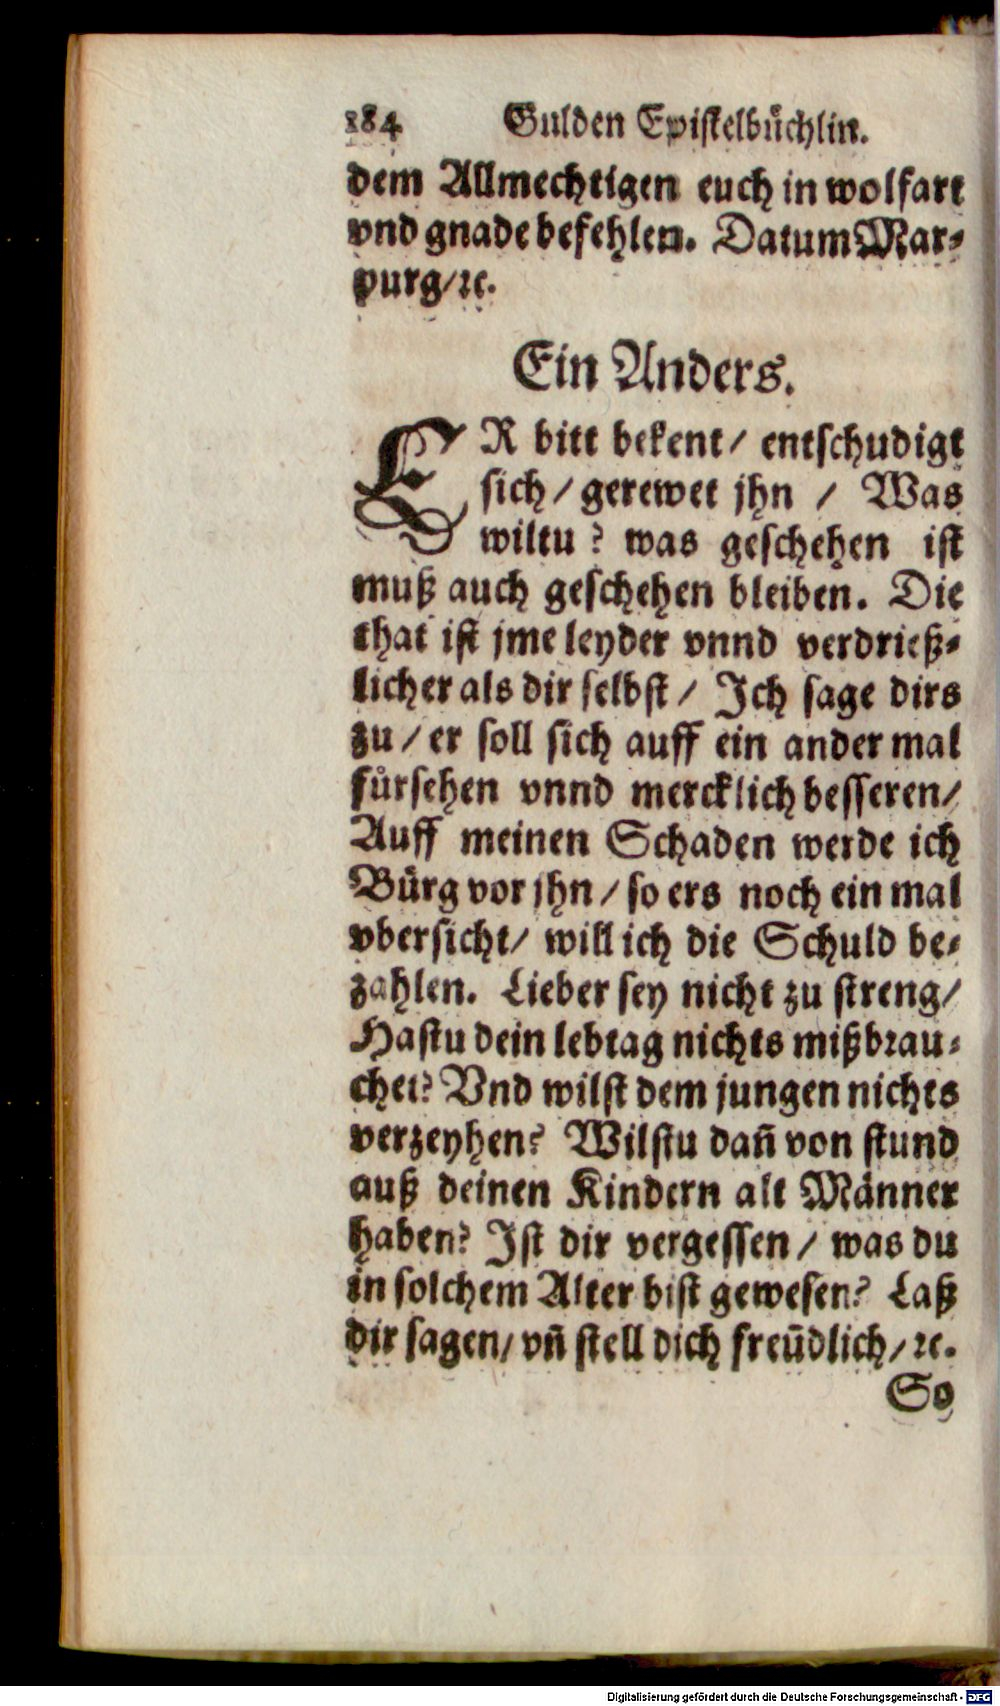 184 Gulden Epistelbuͤchlin.
dem Allmechtigen euch in wolfart
vnd gnade befehlen. Datum Mar⸗
purg/ꝛc.
Ein Anders.
ER bitt bekent/ entschudigt
sich/ gerewet jhn / Was
wiltu? was geschehen ist
muß auch geschehen bleiben. Die
that ist jme leyder vnnd verdrieß⸗
licher als dir selbst/ Ich sage dirs
zu/ er soll sich auff ein ander mal
fuͤrsehen vnnd mercklich besseren/
Auff meinen Schaden werde ich
Buͤrg vor jhn/ so ers noch ein mal
vbersicht/ will ich die Schuld be⸗
zahlen. Lieber sey nicht zu streng/
Hastu dein lebtag nichts mißbrau⸗
chet? Vnd wilst dem jungen nichts
verzeyhen? Wilstu dañ von stund
auß deinen Kindern alt Maͤnner
haben? Ist dir vergessen/ was du
in solchem Alter bist gewesen? Laß
dir sagen/ vñ stell dich freũdlich/ꝛc.
So
Digitalisierung gefördert durch die Deutsche Forschungsgemeinschaft - DFG